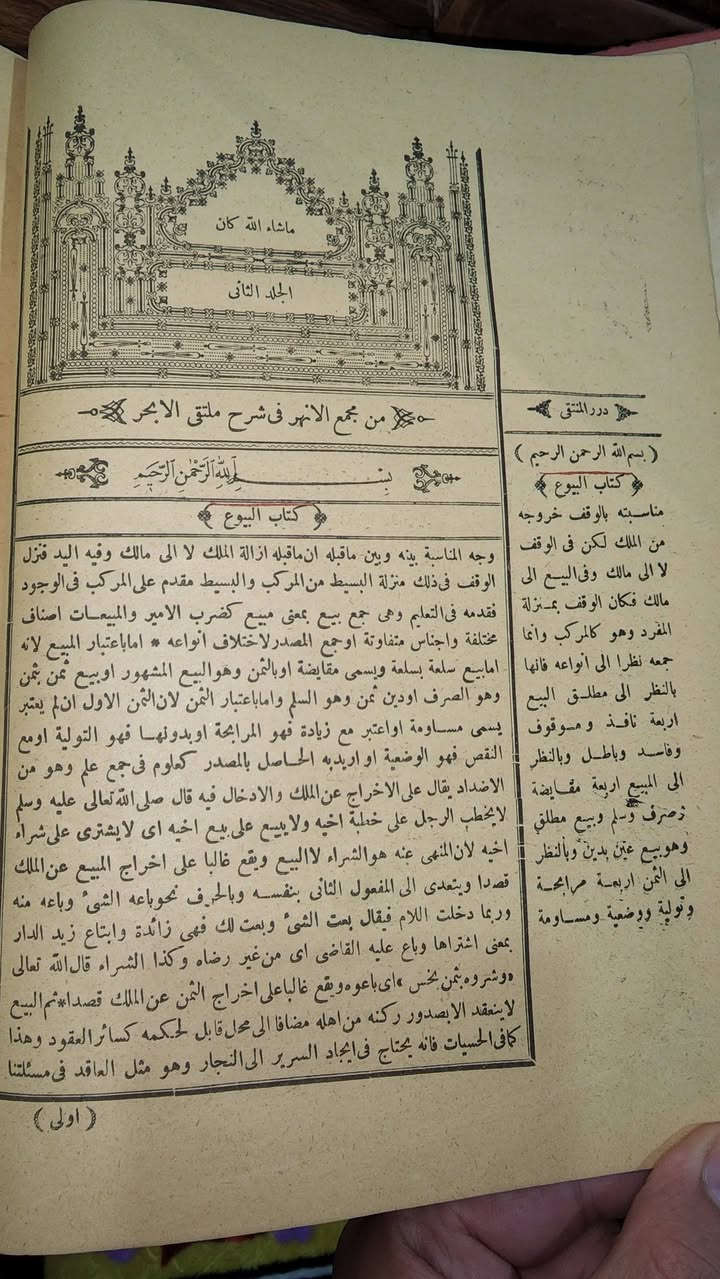 ماشاء الله كان
الجلد الثانى
من مجمع الانهر فى شرح ملتقى الابحر
بسم الله الرحمن الرحيم
﴿ كتاب البيوع ﴾
وجه المناسبة بينه وبين ماقبله ان ماقبله ازالة الملك لا الى مالك وفيه اليد فنزل
الوقف فى ذلك منزلة البسيط من المركب والبسيط مقدم على المركب فى الوجود
فقدمه فى التعليم وهى جمع بيع بمعنى مبيع كضرب الامير والمبيعات اصناف
مختلفة واجناس متفاوتة اوجمع المصدر لاختلاف انواعه * اما باعتبار المبيع لانه
امابيع سلعة بسلعة ويسمى مقايضة اوبالثمن وهوالبيع المشهور اوبيع ثمن بثمن
وهو الصرف اودين ثمن وهو السلم واماباعتبار الثمن لان الثمن الاول ان لم يعتبر
يسمى مساومة اواعتبر مع زيادة فهو المرابحة اوبدونها فهو التولية اومع
النقص فهو الوضعية او اريدبه الحاصل بالمصدر كعلوم فى جمع علم وهو من
الاضداد يقال على الاخراج عن الملك والادخال فيه قال صلى الله تعالى عليه وسلم
لايخطب الرجل على خطبة اخيه ولايبيع على بيع اخيه اى لايشترى على شراء
اخيه لان المنهى عنه هوالشراء لاالبيع ويقع غالبا على اخراج المبيع عن الملك
قصدا ويتعدى الى المفعول الثانى بنفسه وبالحرف نحوباعه الشئ وباعه منه
وربما دخلت اللام فيقال بعت الشئ وبعت لك فهى زائدة وابتاع زيد الدار
بمعنى اشتراها وباع عليه القاضى اى من غير رضاه وكذا الشراء قال الله تعالى
«وشروه بثمن بخس» اى باعوه ويقع غالبا على اخراج الثمن عن الملك قصدا*ثم البيع
لاينعقد الابصدور ركنه من اهله مضافا الى محل قابل لحكمه كسائر العقود وهذا
كمافى الحسيات فانه يحتاج فى ايجاد السرير الى النجار وهو مثل العاقد فى مسئلتنا
( اولى )
درر المنتقى
( بسم الله الرحمن الرحيم )
﴿ كتاب البيوع ﴾
مناسبته بالوقف خروجه
من الملك لكن فى الوقف
لا الى مالك وفى البيع الى
مالك فكان الوقف بمنزلة
المفرد وهو كالمركب وانما
جمعه نظرا الى انواعه فانها
بالنظر الى مطلق البيع
اربعة نافذ وموقوف
وفاسد وباطل وبالنظر
الى المبيع اربعة مقايضة
وصرف وسلم وبيع مطلق
وهوبيع عين بدين وبالنظر
الى الثمن اربعة مرابحة
وتولية ووضعية ومساومة